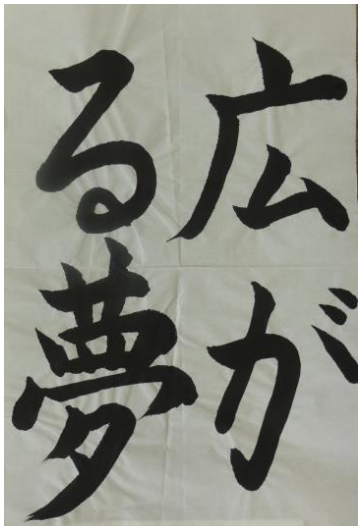 広が
る夢